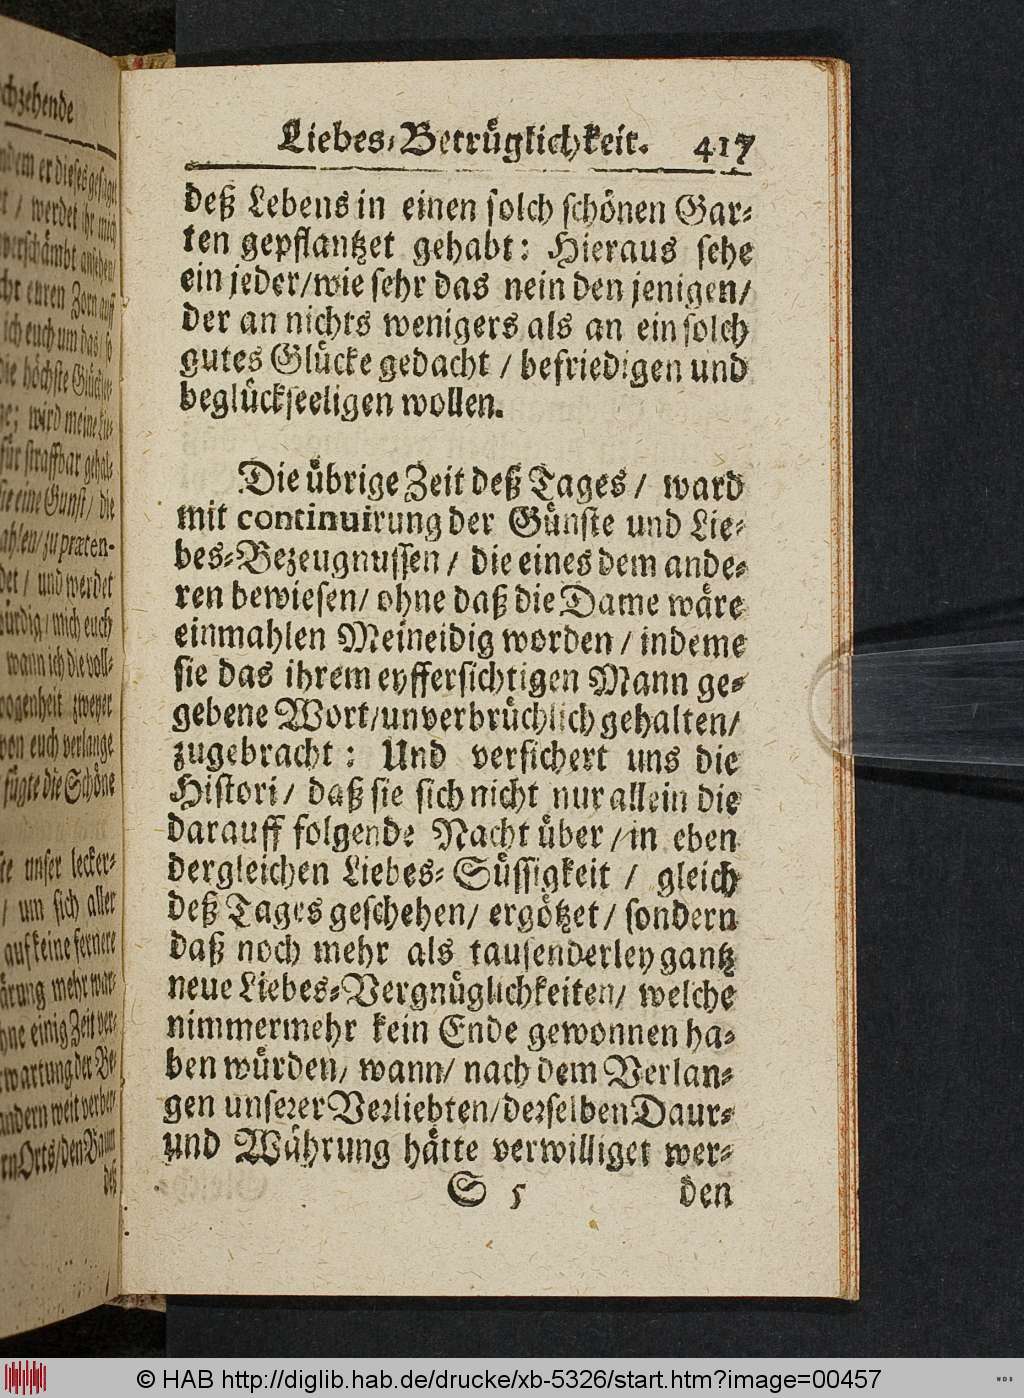 Liebes-Betrüglichkeit. 417
deß Lebens in einen solch schönen Gar-
ten gepflantzet gehabt: Hieraus sehe
ein jeder/wie sehr das nein den jenigen/
der an nichts wenigers als an ein solch
gutes Glücke gedacht / befriedigen und
beglückseeligen wollen.
Die übrige Zeit deß Tages / ward
mit continuirung der Günste und Lie-
bes-Bezeugnussen / die eines dem ande-
ren bewiesen/ ohne daß die Dame wäre
einmahlen Meineidig worden / indeme
sie das ihrem eyffersichtigen Mann ge-
gebene Wort/unverbrüchlich gehalten/
zugebracht: Und versichert uns die
Histori/ daß sie sich nicht nur allein die
darauff folgende Nacht über /in eben
dergleichen Liebes-Süssigkeit / gleich
deß Tages geschehen/ ergötzet/ sondern
daß noch mehr als tausenderley gantz
neue Liebes-Vergnüglichkeiten/ welche
nimmermehr kein Ende gewonnen ha-
ben würden, wann/ nach dem Verlan-
gen unserer Verliebten/derselben Daur-
und Währung hätte verwilliget wer-
S 5 den
chzehende
er dieses gesagt
/ werdet ihr mich
verschämbt ansehen/
euren Zorn auff
ich euch um das/ so
die höchste
wird meine Lie-
für straffbar gehal-
sie eine Gunst/ die
zu præten-
und werdet
mich euch
wann ich die voll-
zweyer
von euch verlange
fügte die Schöne
unser lecker-
/ um sich aller
auf keine fernere
mehr war-
einig Zeit ver-
der Be-
weit verber-
Orts/den Baum
deß
© HAB http://diglib.hab.de/drucke/xb-5326/start.htm?image=00457